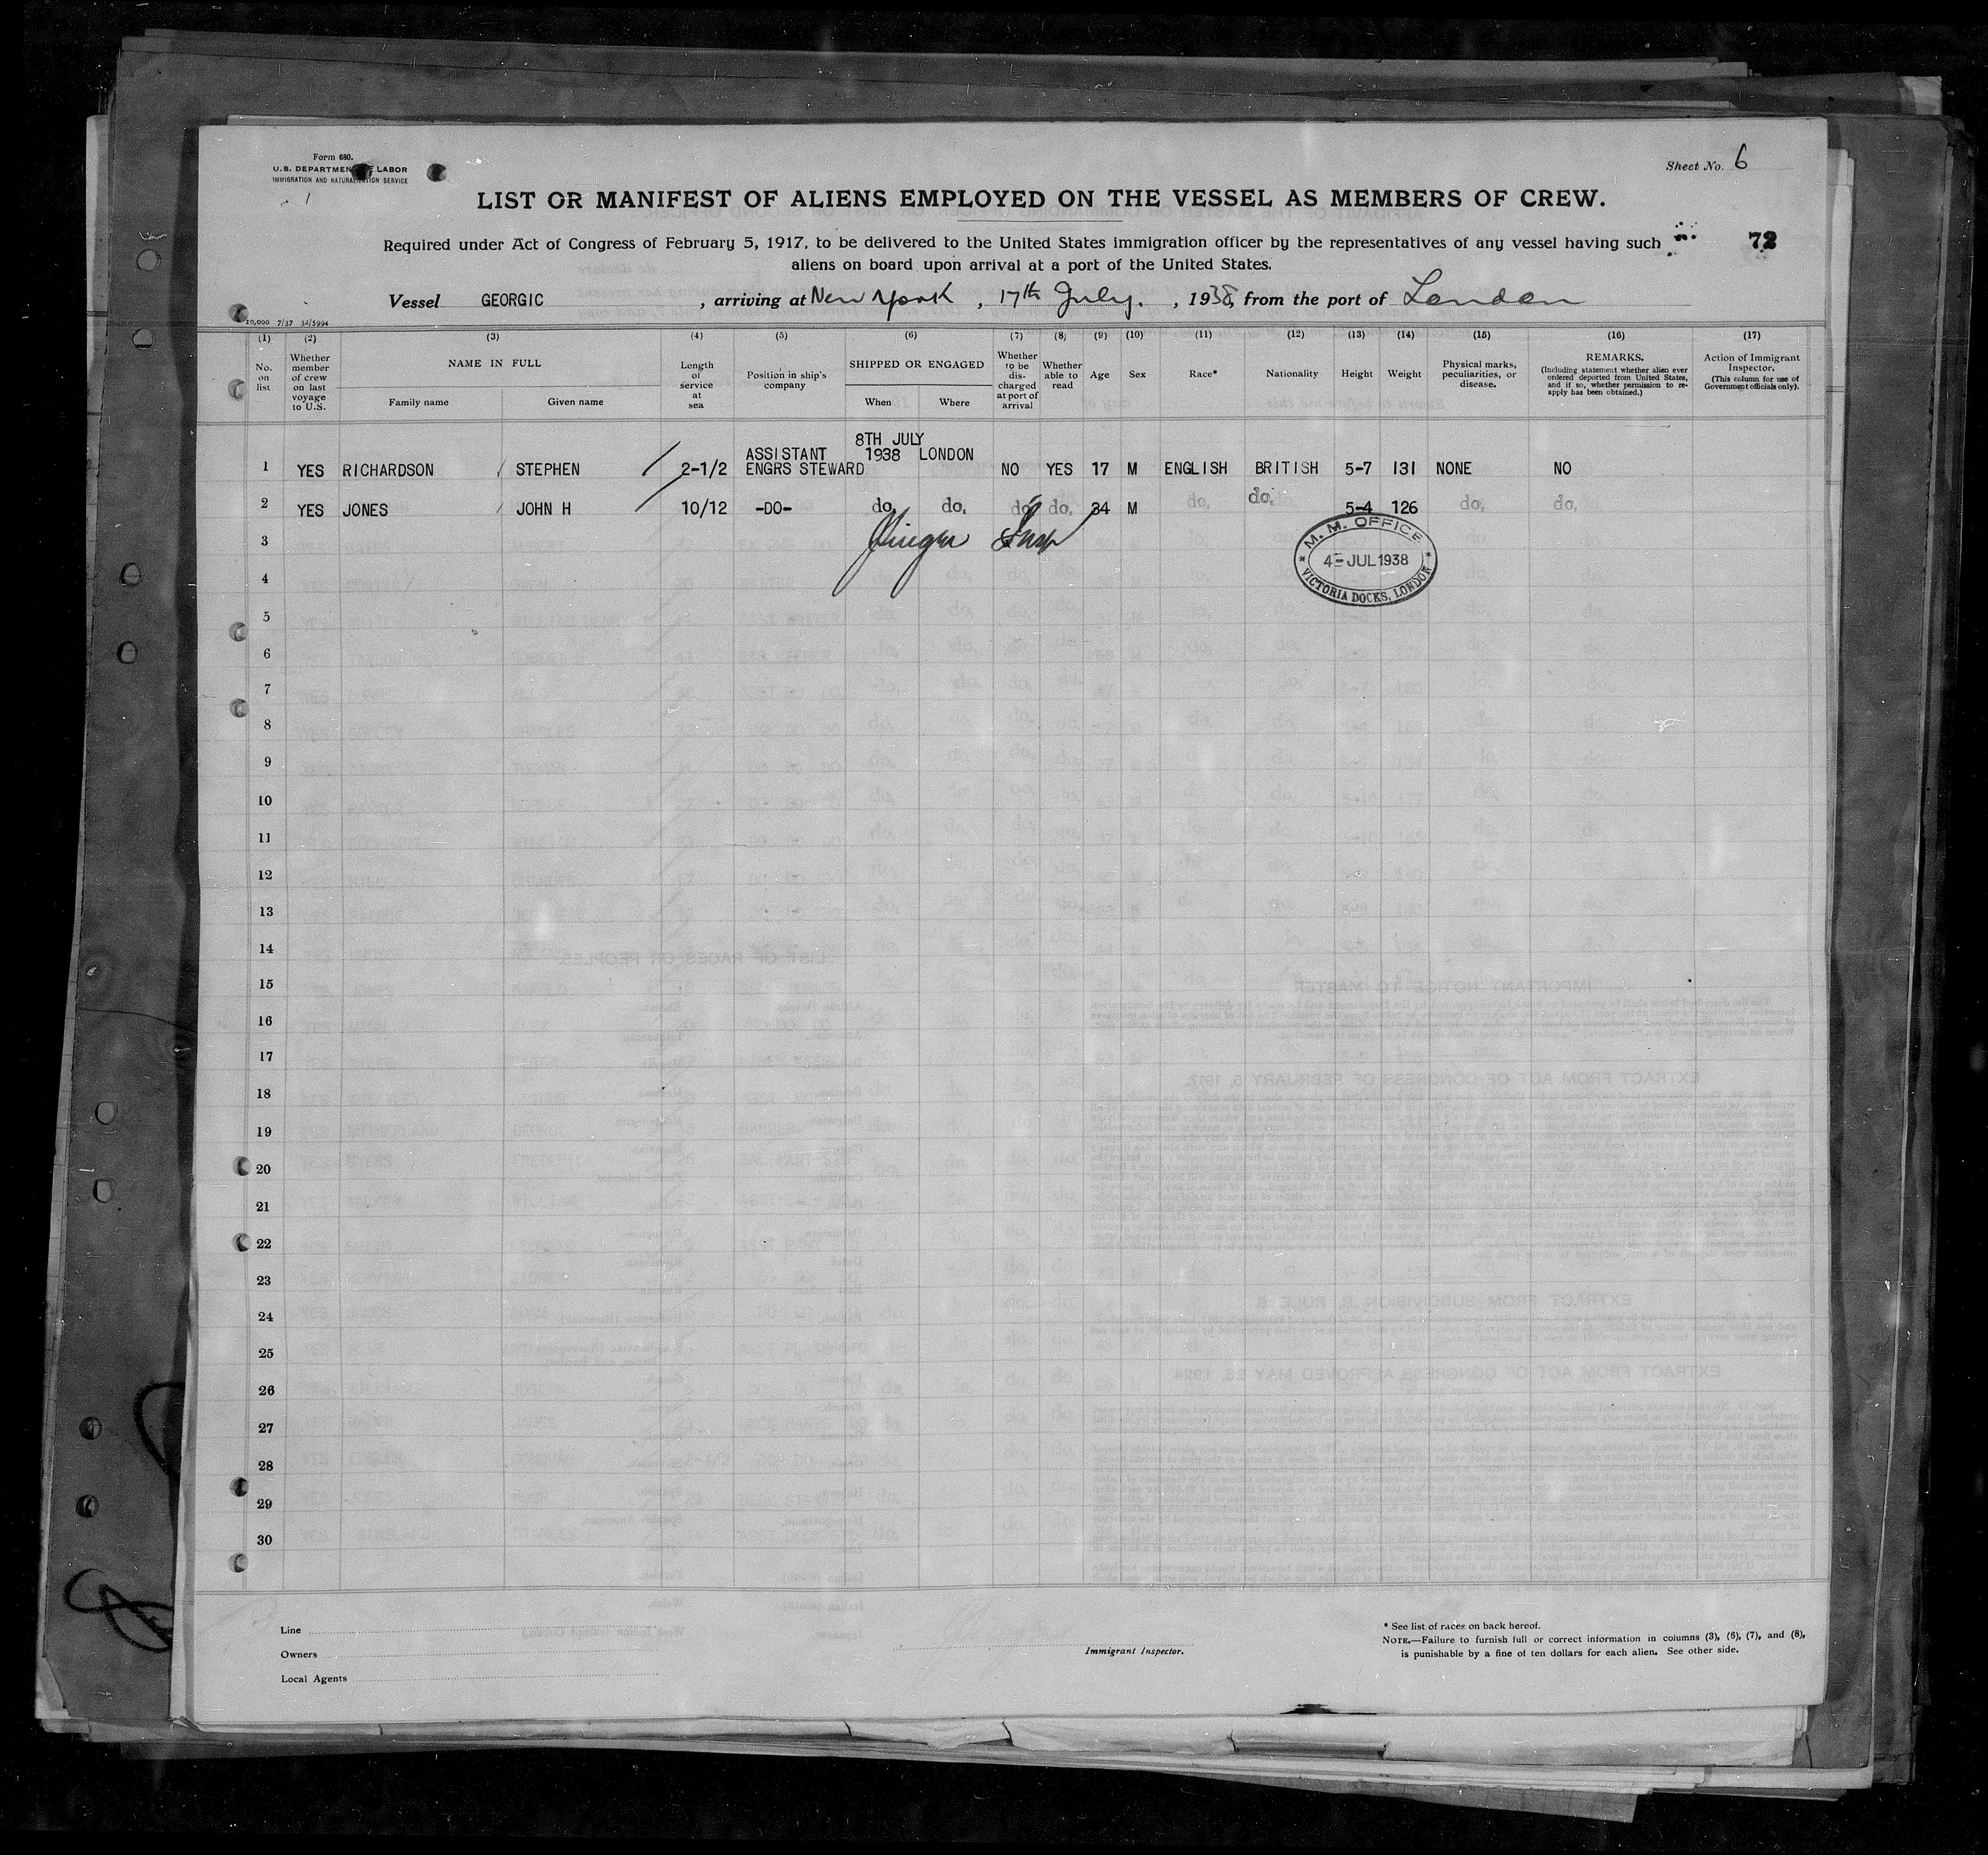 Form 680.
U.S. DEPARTMENT OF LABOR
IMMIGRATION AND NATURALIZATION SERVICE
Sheet No. 6
LIST OR MANIFEST OF ALIENS EMPLOYED ON THE VESSEL AS MEMBERS OF CREW.
Required under Act of Congress of February 5, 1917, to be delivered to the United States immigration officer by the representatives of any vessel having such
aliens on board upon arrival at a port of the United States.
72
Vessel GEORGIC , arriving at New York , 17th July. , 1938, from the port of London
10,000 7/37 32/5994
(1) (2) (3) (4) (5) (6) (7) (8) (9) (10) (11) (12) (13) (14) (15) (16) (17)
No. on list
Whether member of crew on last voyage to U.S.
NAME IN FULL
Family name
Given name
Length of service at sea
Position in ship's company
SHIPPED OR ENGAGED
When
Where
Whether to be discharged at port of arrival
Whether able to read
Age
Sex
Race*
Nationality
Height
Weight
Physical marks, peculiarities, or disease.
REMARKS.
(Including statement whether alien ever ordered deported from United States, and if so, whether permission to reapply has been obtained.)
Action of Immigrant Inspector.
(This column for use of Government officials only).
1 YES RICHARDSON STEPHEN 2-1/2 ASSISTANT ENGRS STEWARD 8TH JULY 1938 LONDON NO YES 17 M ENGLISH BRITISH 5-7 131 NONE NO
2 YES JONES JOHN H 10/12 -DO- do. do. do. do. 34 M do. do. 5-4 126 do. do.
M. M. OFFICE
4- JUL 1938
VICTORIA DOCKS, LONDON
3
4
5
6
7
8
9
10
11
12
13
14
15
16
17
18
19
20
21
22
23
24
25
26
27
28
29
30
Line
Owners
Local Agents
Immigrant Inspector.
* See list of races on back hereof.
NOTE.—Failure to furnish full or correct information in columns (3), (6), (7), and (8),
is punishable by a fine of ten dollars for each alien. See other side.